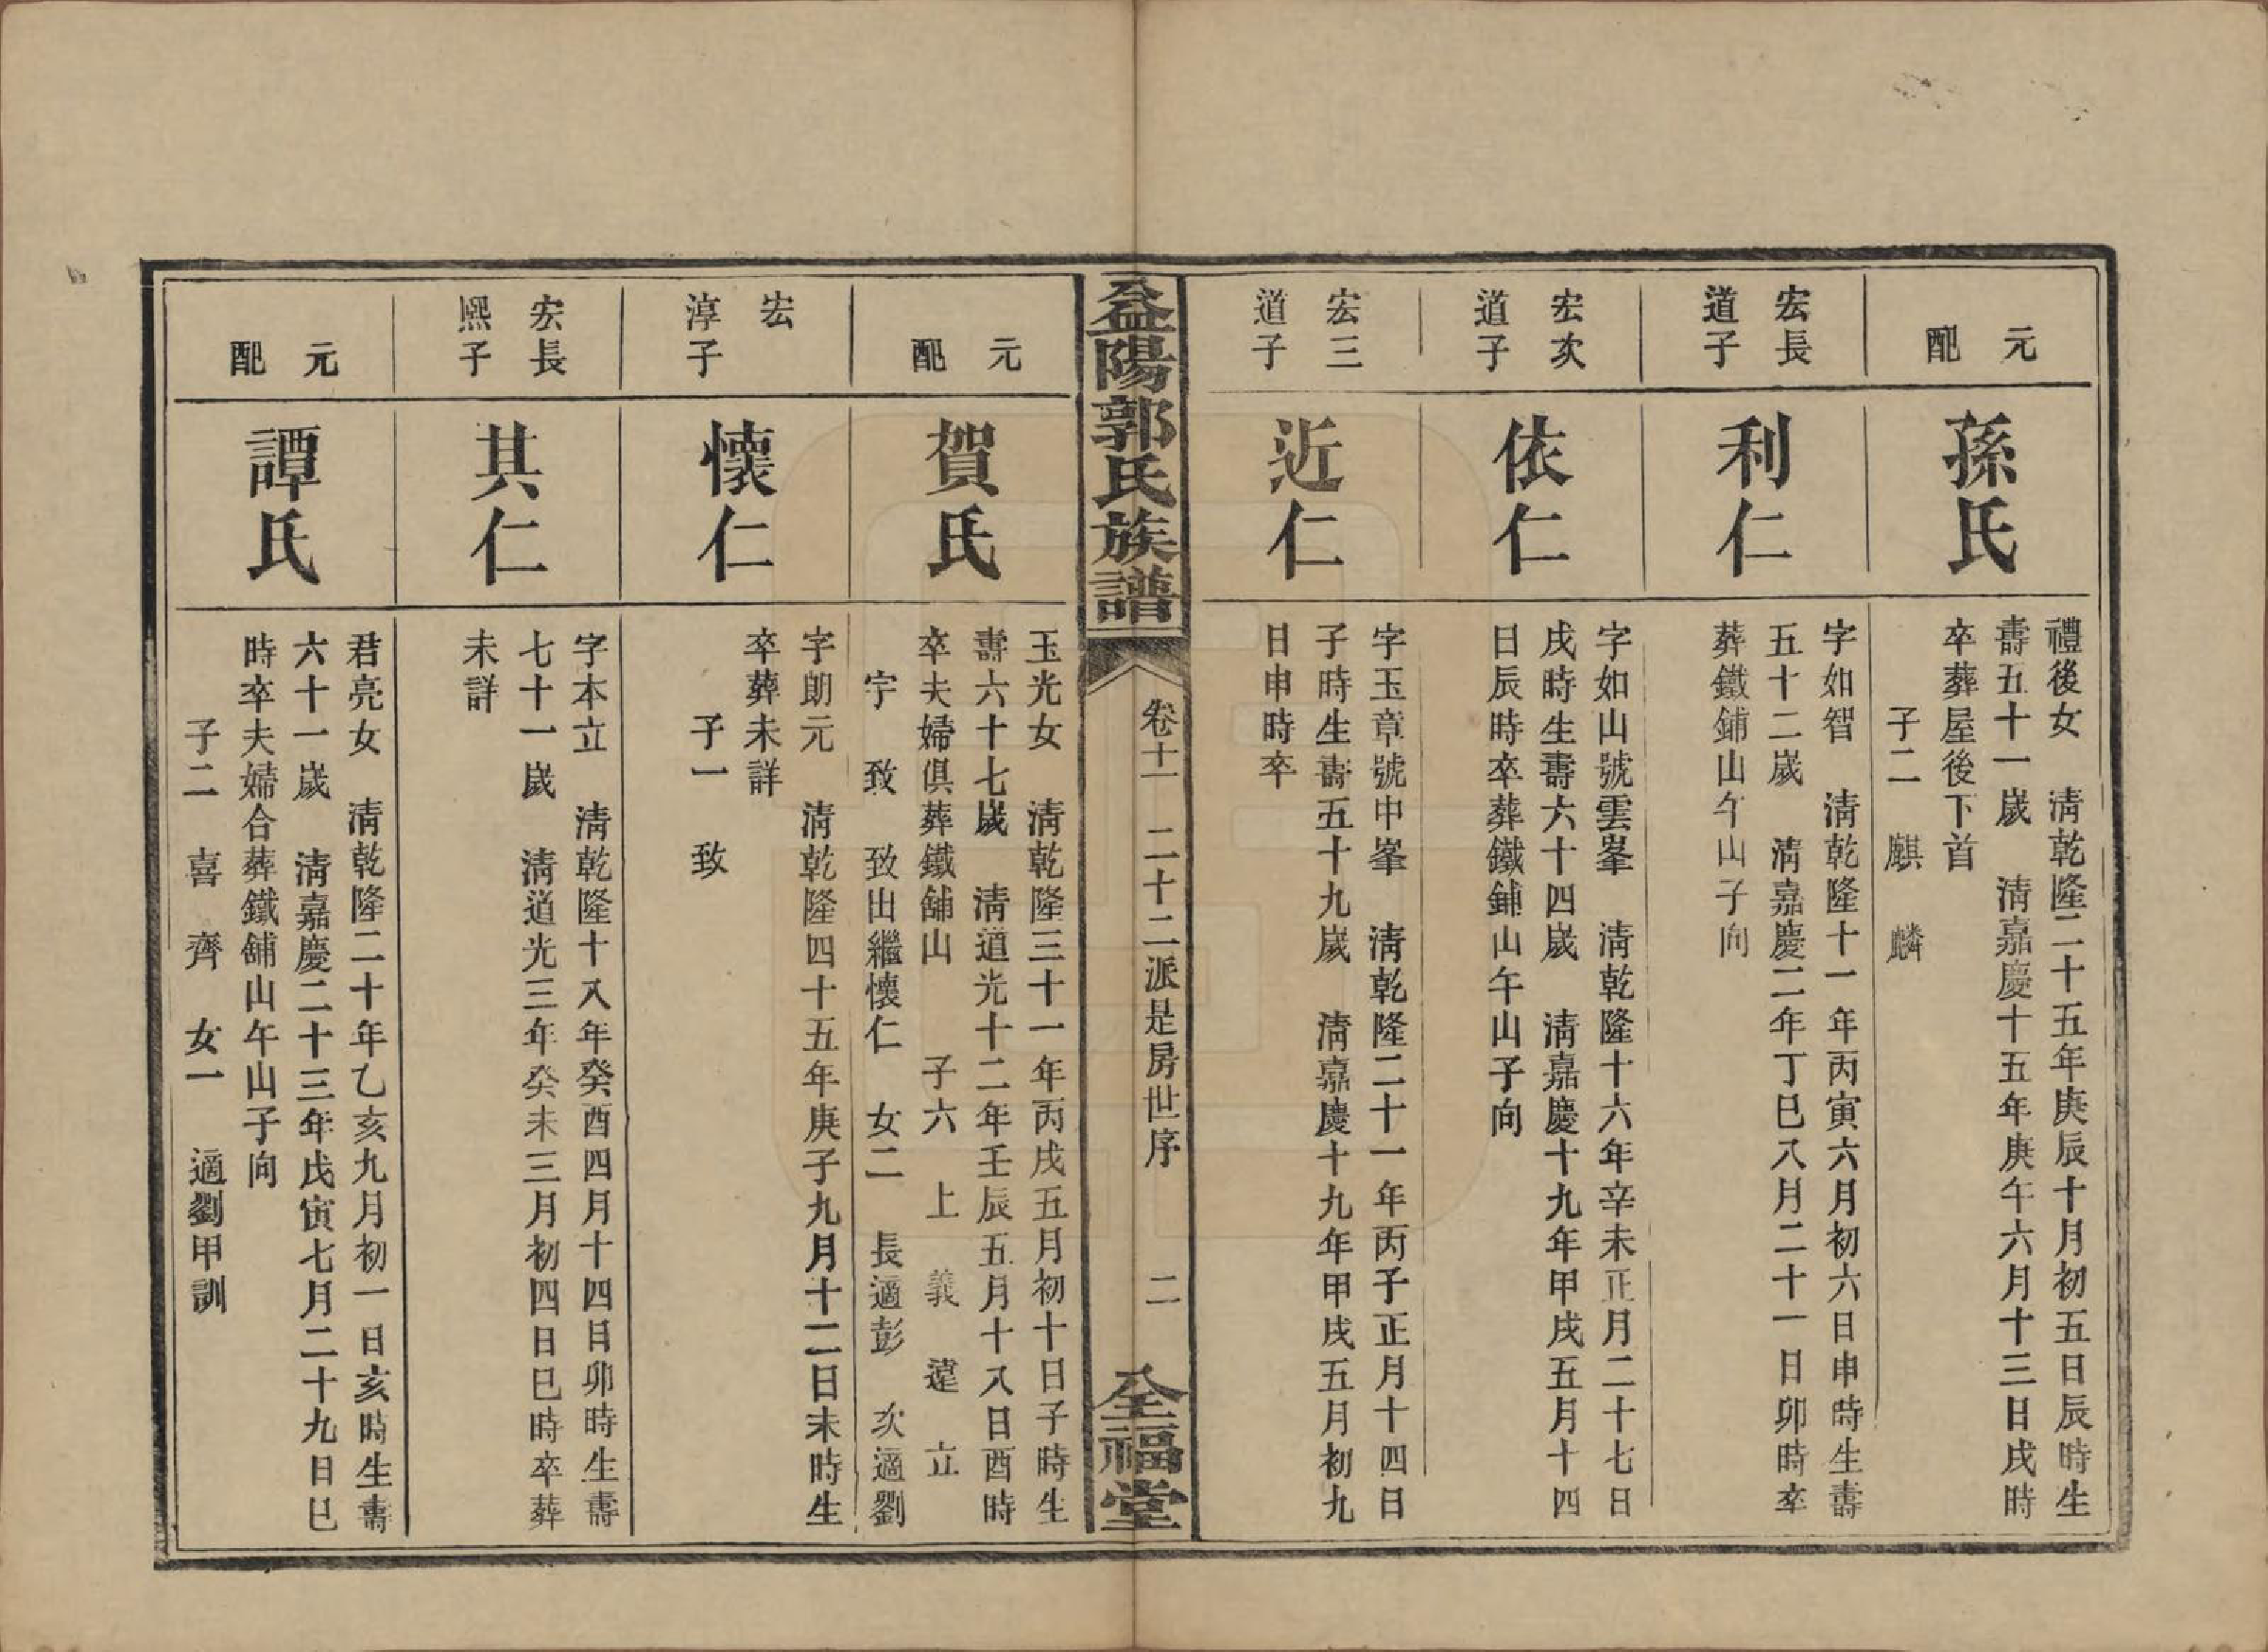 元
配
孫氏
禮後女　清乾隆二十五年庚辰十月初五日辰時生
壽五十一歲　清嘉慶十五年庚午六月十三日戌時
卒葬屋後下首
子二　麒　麟
宏長
道子
利仁
字如智　清乾隆十一年丙寅六月初六日申時生壽
五十二歲　清嘉慶二年丁巳八月二十一日卯時卒
葬鐵鋪山午山子向
宏次
道子
依仁
字如山號雲峯　清乾隆十六年辛未正月二十七日
戌時生壽六十四歲　清嘉慶十九年甲戌五月十四
日辰時卒葬鐵鋪山午山子向
宏三
道子
近仁
字玉章號申峯　清乾隆二十一年丙子正月十四日
子時生壽五十九歲　清嘉慶十九年甲戌五月初九
日申時卒
益陽郭氏族譜
卷十一　二十二派是房世序　二
全福堂
元
配
賀氏
玉光女　清乾隆三十一年丙戌五月初十日子時生
壽六十七歲　清道光十二年壬辰五月十八日酉時
卒夫婦俱葬鐵鋪山　子六　上　義　達　立
宇　致　致出繼懷仁　女二　長適彭　次適劉
宏
淳子
懷仁
字朗元　清乾隆四十五年庚子九月十二日未時生
卒葬未詳
子一　致
宏長
熙子
其仁
字本立　清乾隆十八年癸酉四月十四日卯時生壽
七十一歲　清道光三年癸未三月初四日巳時卒葬
未詳
元
配
譚氏
君亮女　清乾隆二十年乙亥九月初一日亥時生壽
六十一歲　清嘉慶二十三年戊寅七月二十九日巳
時卒夫婦合葬鐵鋪山午山子向
子二　喜　齊　女一　適劉甲訓